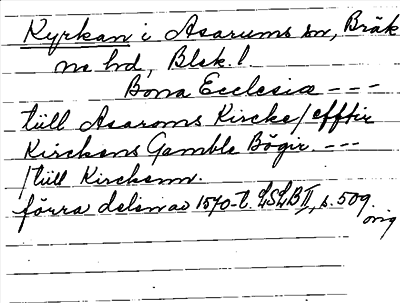 Kyrkan i Asarums sn, Bräk
ne hd, Blek. l.
Bona Ecclesiæ ---
tüll Asaroms Kircke/efftir
Kirckens Gamble Bögir ---
/tüll Kirckenn.
förra delen av 1570-t. LSLB II, s. 509.
orig